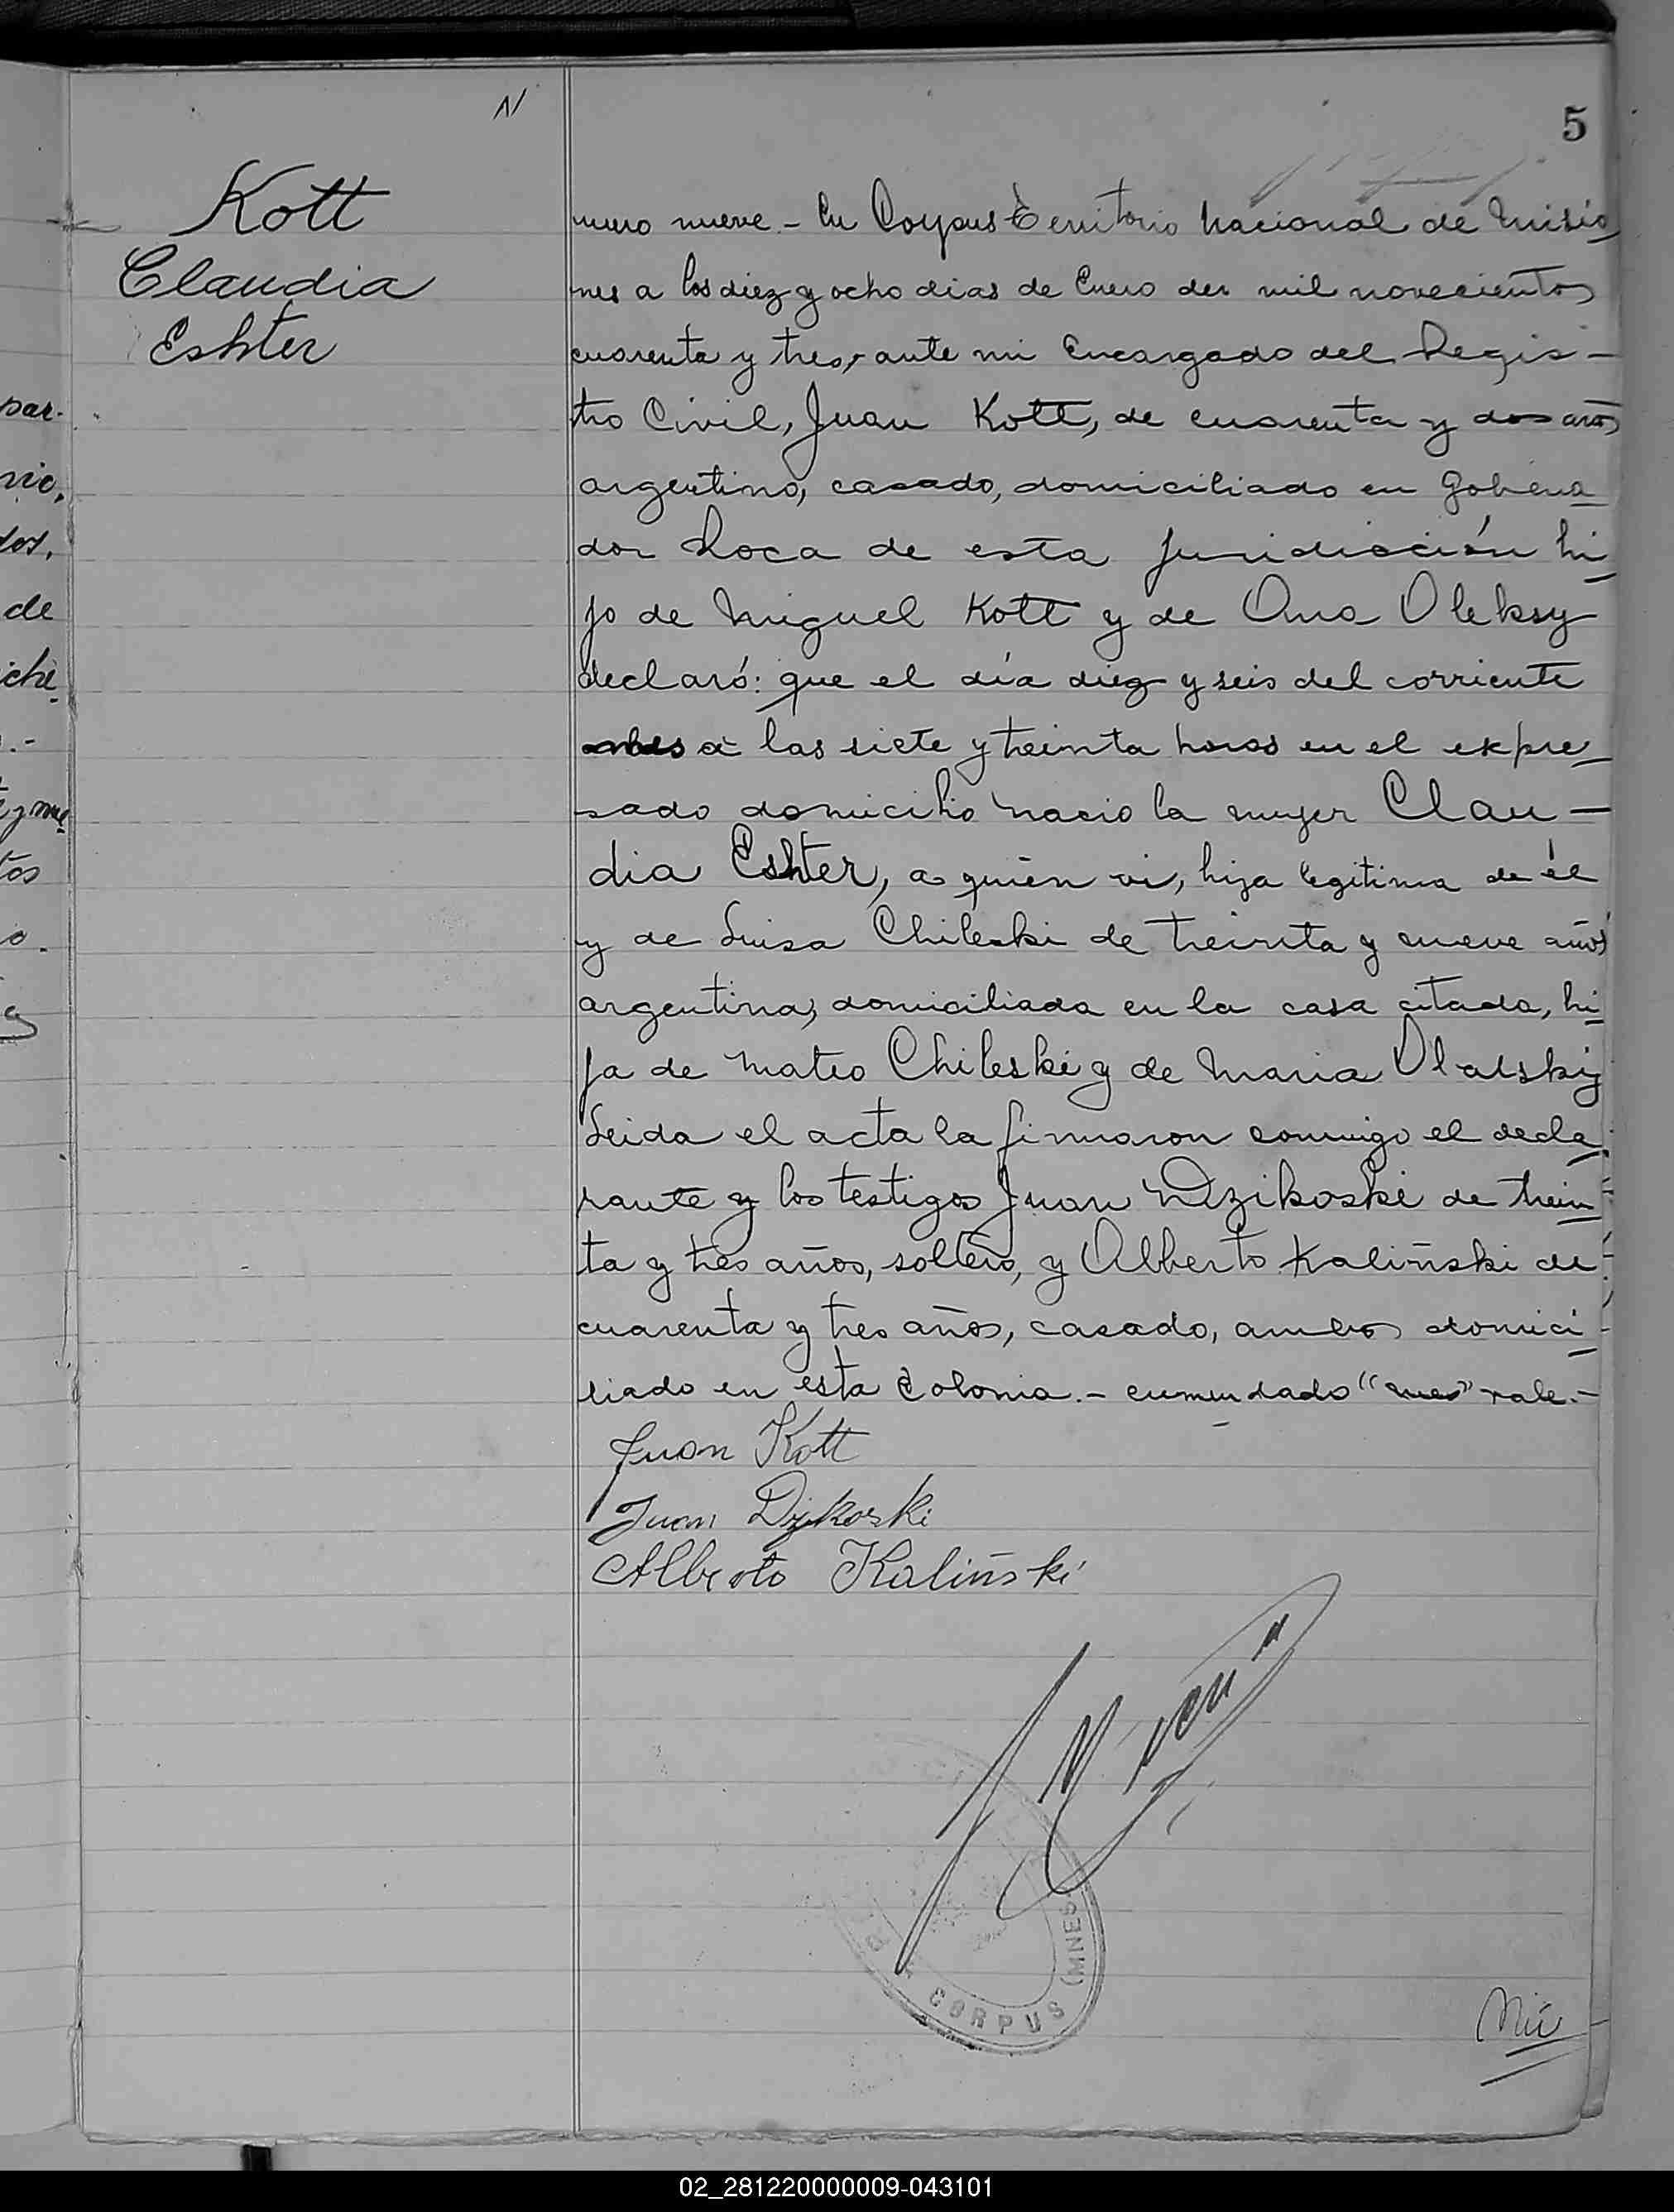 N
5
Kott
Claudia
Eshter
mero nueve.- En Corpus Territorio Nacional de Misio
nes a los diez y ocho dias de Enero de mil novecientos
cuarenta y tres, ante mi Encargado del Regis-
tro Civil, Juan Kott, de cuarenta y dos años
argentino, casado, domiciliado en Goberna
dor Roca de esta juridicción hi
jo de Miguel Kott y de Ana Oleksy
declaró: que el día diez y seis del corriente
mes a las siete y treinta horas en el expre
sado domicilio nacio la mujer Clau-
dia Eshter, a quién vi, hija legitima de él
y de Luisa Chileski de treinta y nueve años
argentina, domiciliada en la casa citada, hi
ja de Mateo Chileski y de Maria
Leida el acta la firmaron conmigo el decla
rante y los testigos Juan Dzikoski de trein
ta y tres años, soltero, y Alberto Kaliñski de
cuarenta y tres años, casado, ambos domici
liado en esta Colonia.- enmendado "mes" vale.-
Juan Kott
Juan
Alberto Kaliñski
CORPUS (MNES
par.
nio,
dos,
de
iche
tos
o.
02_281220000009-043101